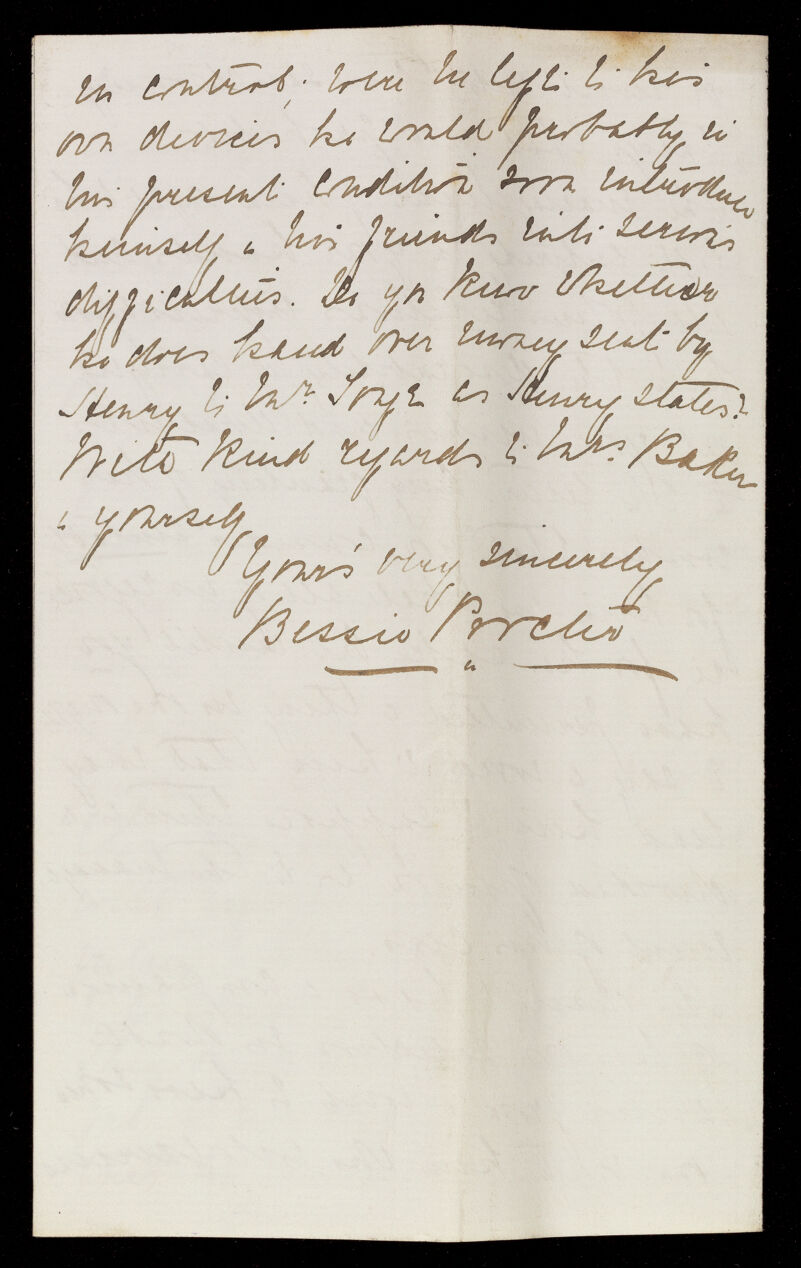 no control; were he left to his
own devices he would probably in
his present condition soon introduce
himself & his friends into serious
difficulties. Do you know whether
he does hand over money sent by
Henry to Mr. as Henry states?
With kind regards to Mrs. Baker
& yourself
Yours very sincerely
Bessie